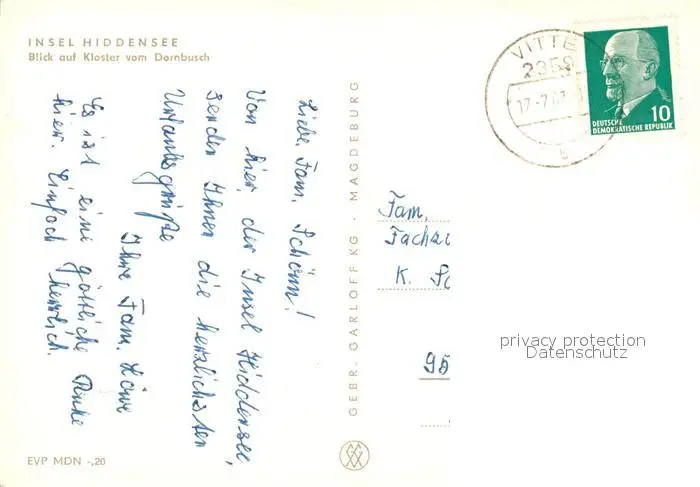 INSEL HIDDENSEE
Blick auf Kloster vom Dornbusch
Liebe Fam. Schömm!
Von hier, der Insel Hiddensee,
senden Ihnen die herzlichsten
Urlaubsgrüße
Ihre Fam. Löwe
Es ist eine göttliche Ruhe
hier. Einfach herrlich.
EVP MDN -,20
GEBR. GARLOFF KG · MAGDEBURG
VITTE
2359
17-7.67
b
10
DEUTSCHE
DEMOKRATISCHE REPUBLIK
Fam.
K.
95
privacy protection
Datenschutz